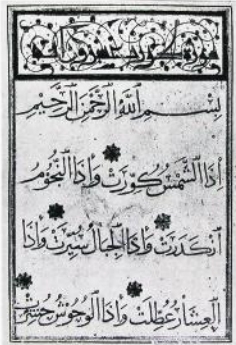 بِسْمِ اللَّهِ الرَّحْمَٰنِ الرَّحِيمِ
إِذَا الشَّمْسُ كُوِّرَتْ وَإِذَا النُّجُومُ
انْكَدَرَتْ وَإِذَا الْجِبَالُ سُيِّرَتْ وَإِذَا
الْعِشَارُ عُطِّلَتْ وَإِذَا الْوُحُوشُ حُشِرَتْ